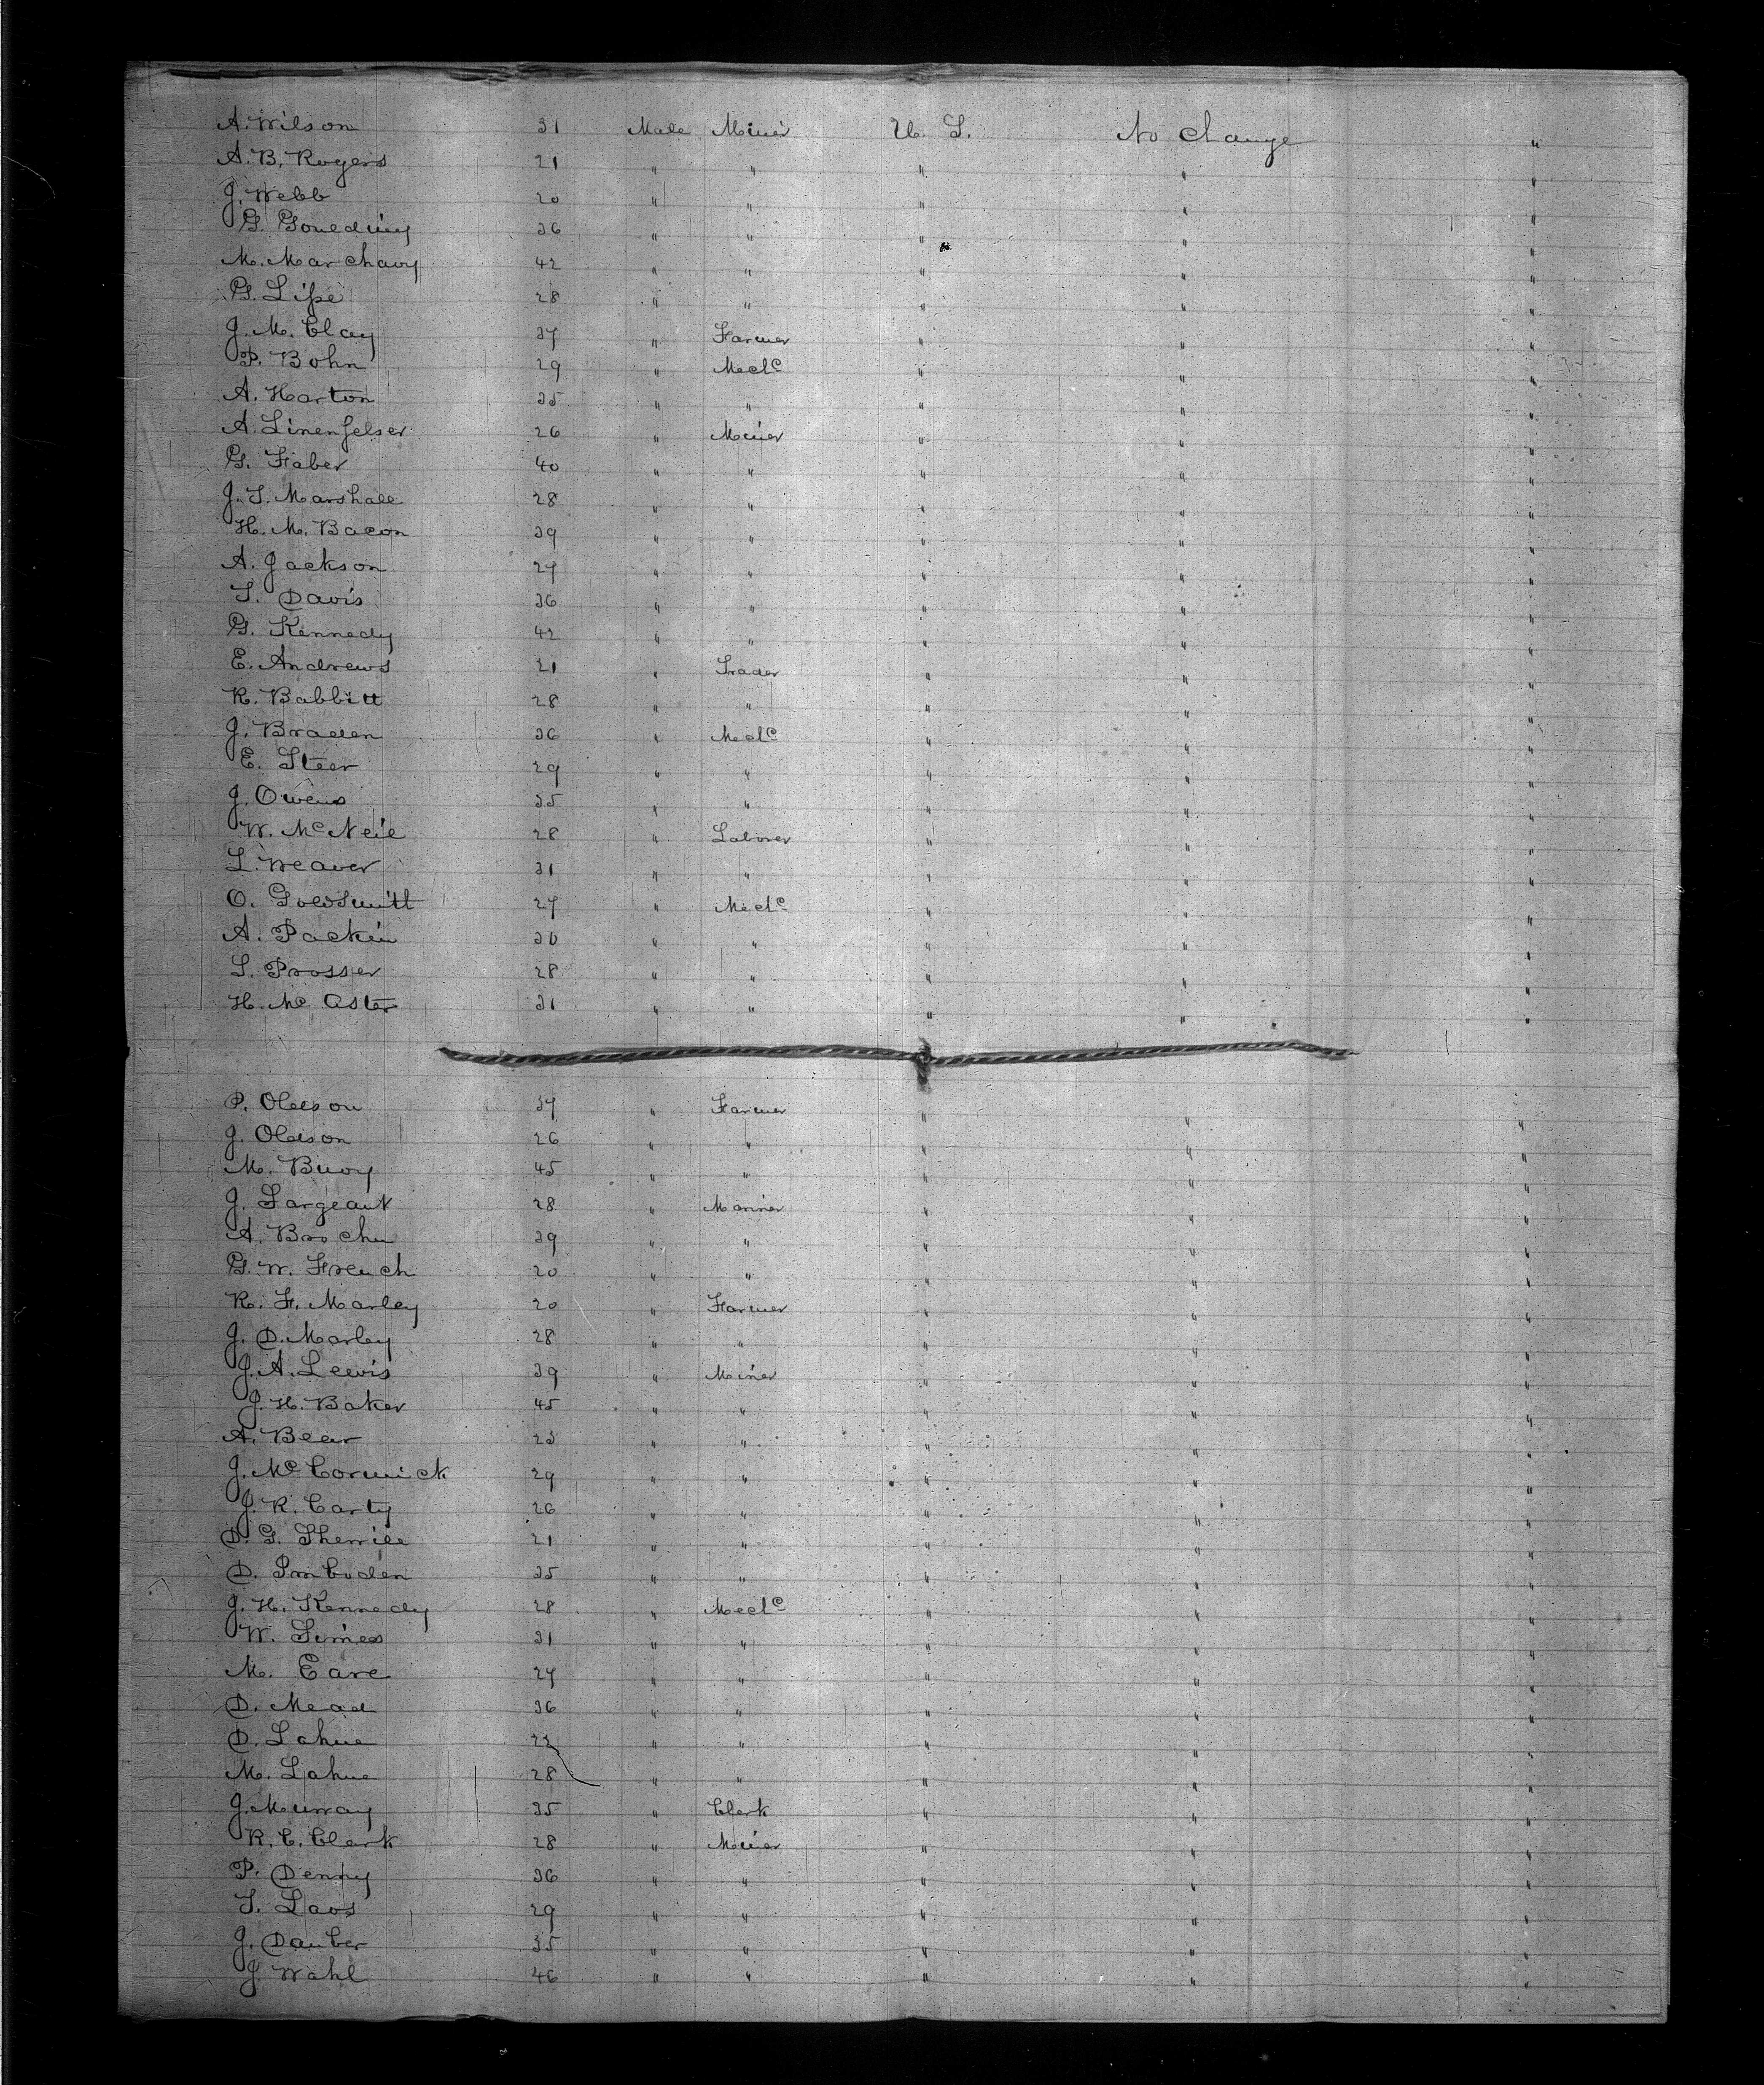 A. Wilson 31 Male Miner U. S. No change "
A. B. Rogers 21 " " " " "
J. Webb 20 " " " " "
G. Goulding 36 " " " " "
M. Marchavy 42 " " " " "
G. Lipe 28 " " " " "
J. M. Clay 37 " Farmer " " "
P. Bohn 29 " Mechc " " "
A. Harton 35 " " " " "
A. Linenfelser 26 " Miner " " "
G. Faber 40 " " " " "
J. S. Marshall 28 " " " " "
H. M. Bacon 39 " " " " "
A. Jackson 27 " " " " "
S. Davis 36 " " " " "
G. Kennedy 42 " " " " "
E. Andrews 21 " Trader " " "
R. Babbitt 28 " " " " "
J. Braden 36 " Mechc " " "
E. Steer 29 " " " " "
J. Owens 35 " " " " "
W. McNeil 28 " Laborer " " "
L. Weaver 31 " " " " "
O. Goldsmith 27 " Mechc " " "
A. Packin 30 " " " " "
S. Prosser 28 " " " " "
H. Mc Aster 31 " " " " "
P. Oleson 37 " Farmer " " "
J. Oleson 26 " " " " "
M. Buoy 45 " " " " "
J. Sargeant 28 " Mariner " " "
A. Brochu 39 " " " " "
G. W. French 20 " " " " "
R. F. Marley 20 " Farmer " " "
J. D. Marley 28 " " " " "
J. A. Lewis 39 " Miner " " "
J. H. Baker 45 " " " " "
A. Bear 23 " " " " "
J. McCormick 29 " " " " "
J. R. Carty 26 " " " " "
D. G. Sherrill 21 " " " " "
D. Imboden 35 " " " " "
J. H. Kennedy 28 " Mechc " " "
W. Simes 31 " " " " "
M. Eare 27 " " " " "
D. Mead 36 " " " " "
D. Lahue 22 " " " " "
M. Lahue 28 " " " " "
J. Murray 35 " Clerk " " "
R. C. Clark 28 " Miner " " "
P. Denny 36 " " " " "
S. Laos 29 " " " " "
J. Dauber 35 " " " " "
J. Wahl 46 " " " " "